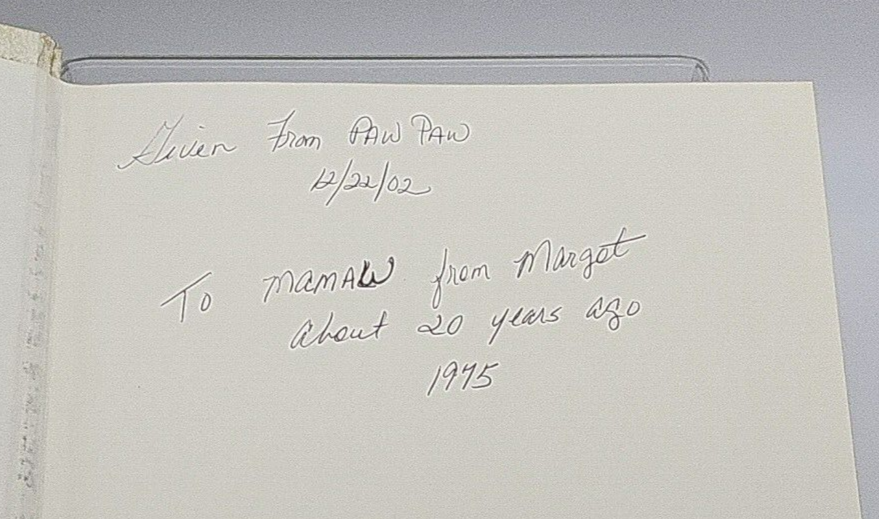 Given From PAW PAW
12/22/02
To MAMAW from Margot
about 20 years ago
1975